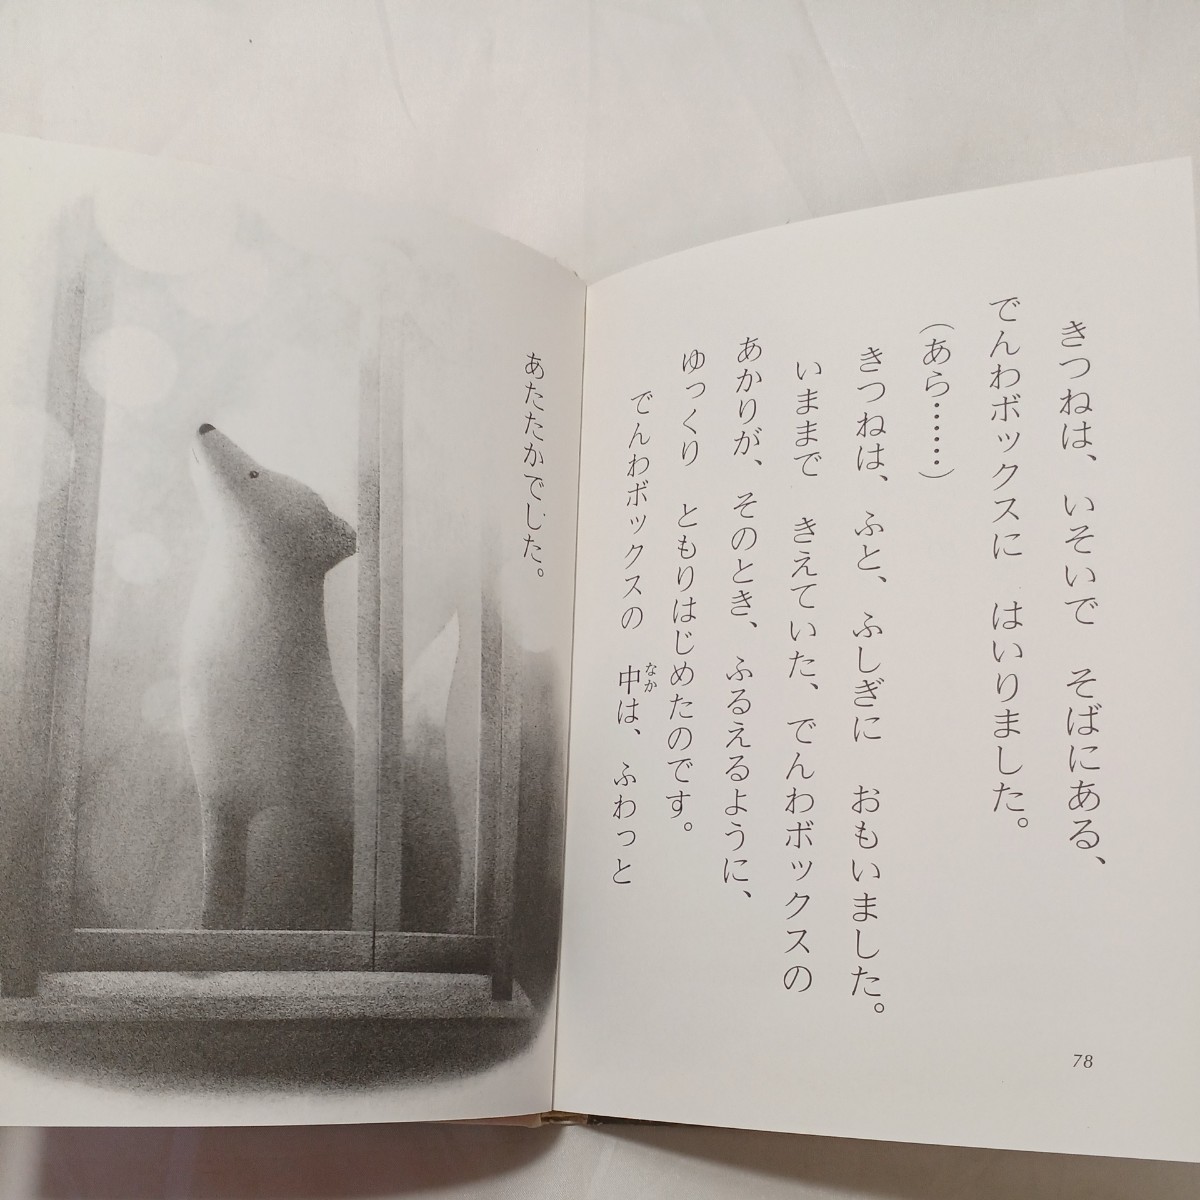 きつねは、いそいで　そばにある、
でんわボックスに　はいりました。
（あら………）
きつねは、ふと、ふしぎに　おもいました。
いままで　きえていた、でんわボックスの
あかりが、そのとき、ふるえるように、
ゆっくり　ともりはじめたのです。
でんわボックスの　中は、ふわっと
なか
あたたかでした。
78